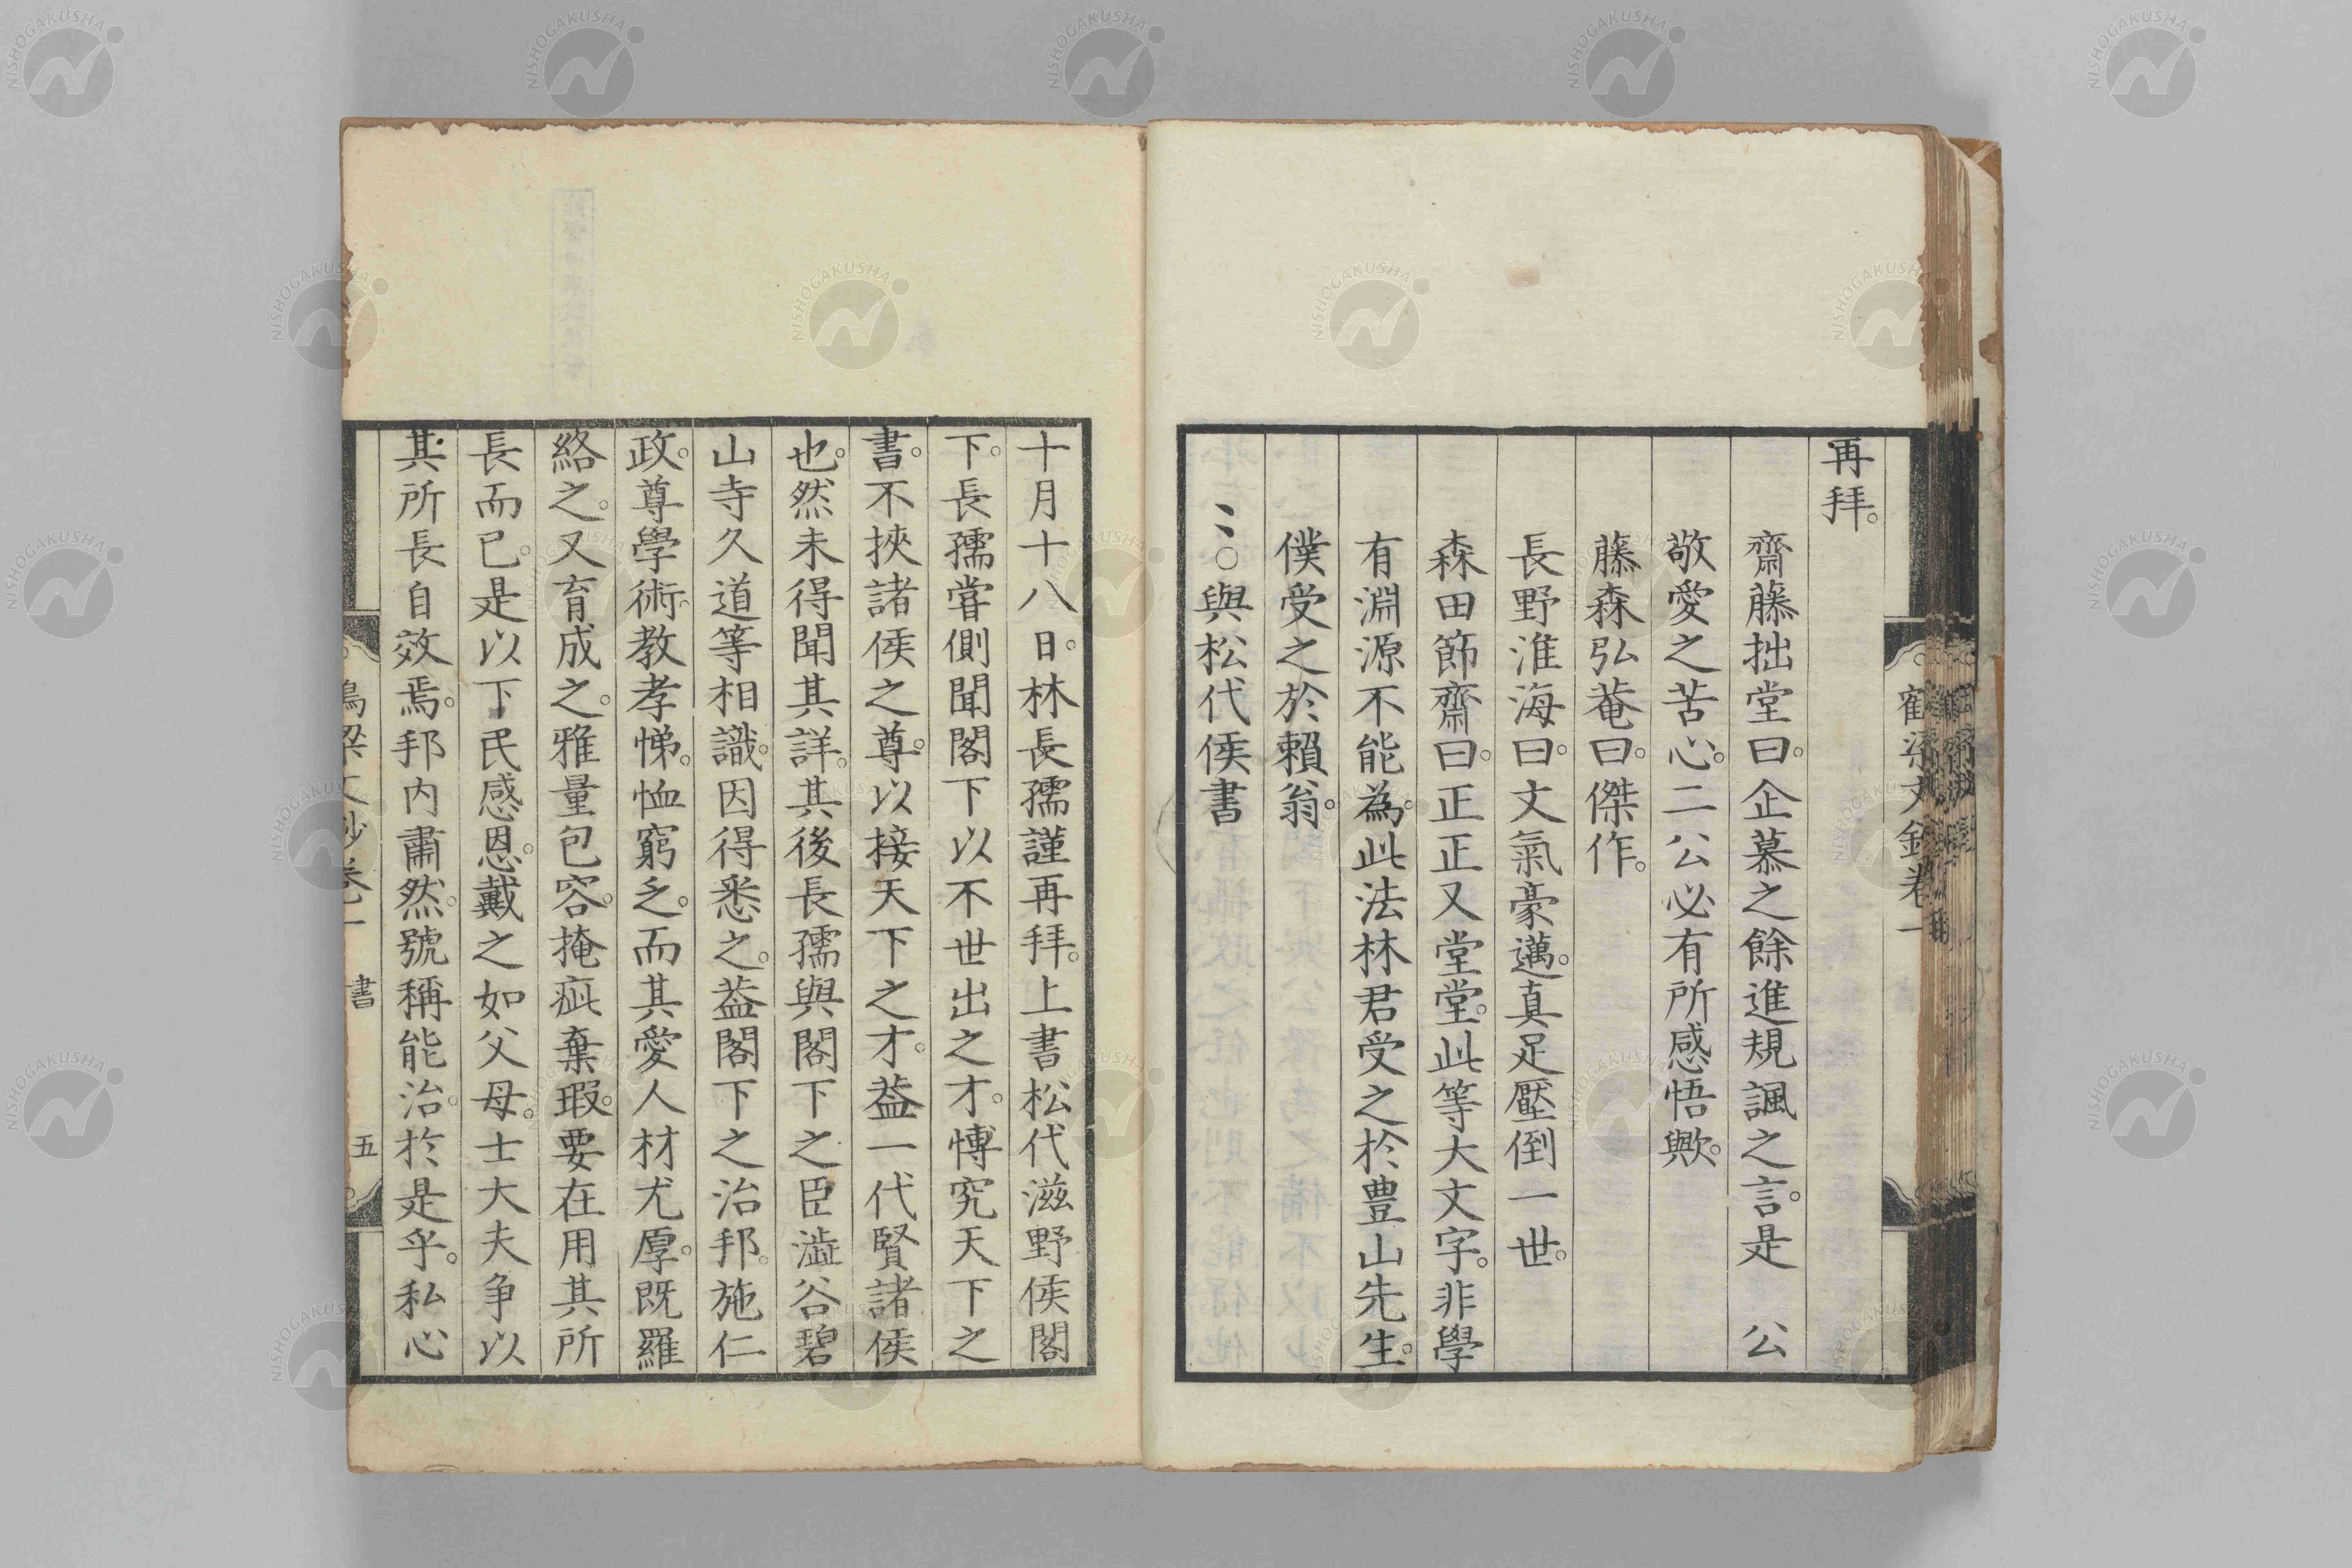 再拜。
齋藤拙堂曰。企慕之餘進規諷之言。是　公
敬愛之苦心。二公必有所感悟歟。
藤森弘菴曰。傑作。
長野淮海曰。文氣豪邁。真足壓倒一世。
森田節齋曰。正正又堂堂。此等大文字。非學
有淵源不能為。此法林君受之於豊山先生。
僕受之於賴翁。
〻○與松代侯書
十月十八日。林長孺謹再拜。上書松代滋野侯閣
下。長孺嘗側聞閣下以不世出之才。博究天下之
書。不挾諸侯之尊。以接天下之才。葢一代賢諸侯
也。然未得聞其詳。其後長孺與閣下之臣澁谷碧
山寺久道等相識。因得悉之。葢閣下之治邦。施仁
政。尊學術。教孝悌。恤窮乏。而其愛人材尤厚。既羅
絡之。又育成之。雅量包容。掩疵棄瑕。要在用其所
長而已。是以下民感恩。戴之如父母。士大夫争以
其所長自效焉。邦内肅然。號稱能治。於是乎。私心
鶴梁文鈔卷一
書
五
NISHOGAKUSHA